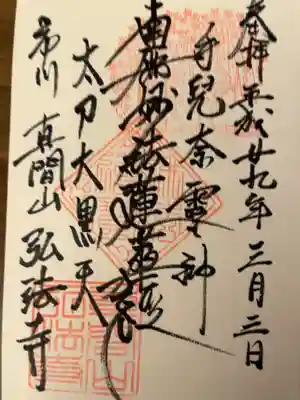 奉拝 平成廿九年 三月三日
手兒奈霊神
南無妙法蓮華経
太刀大黒天
市川 真間山 弘法寺